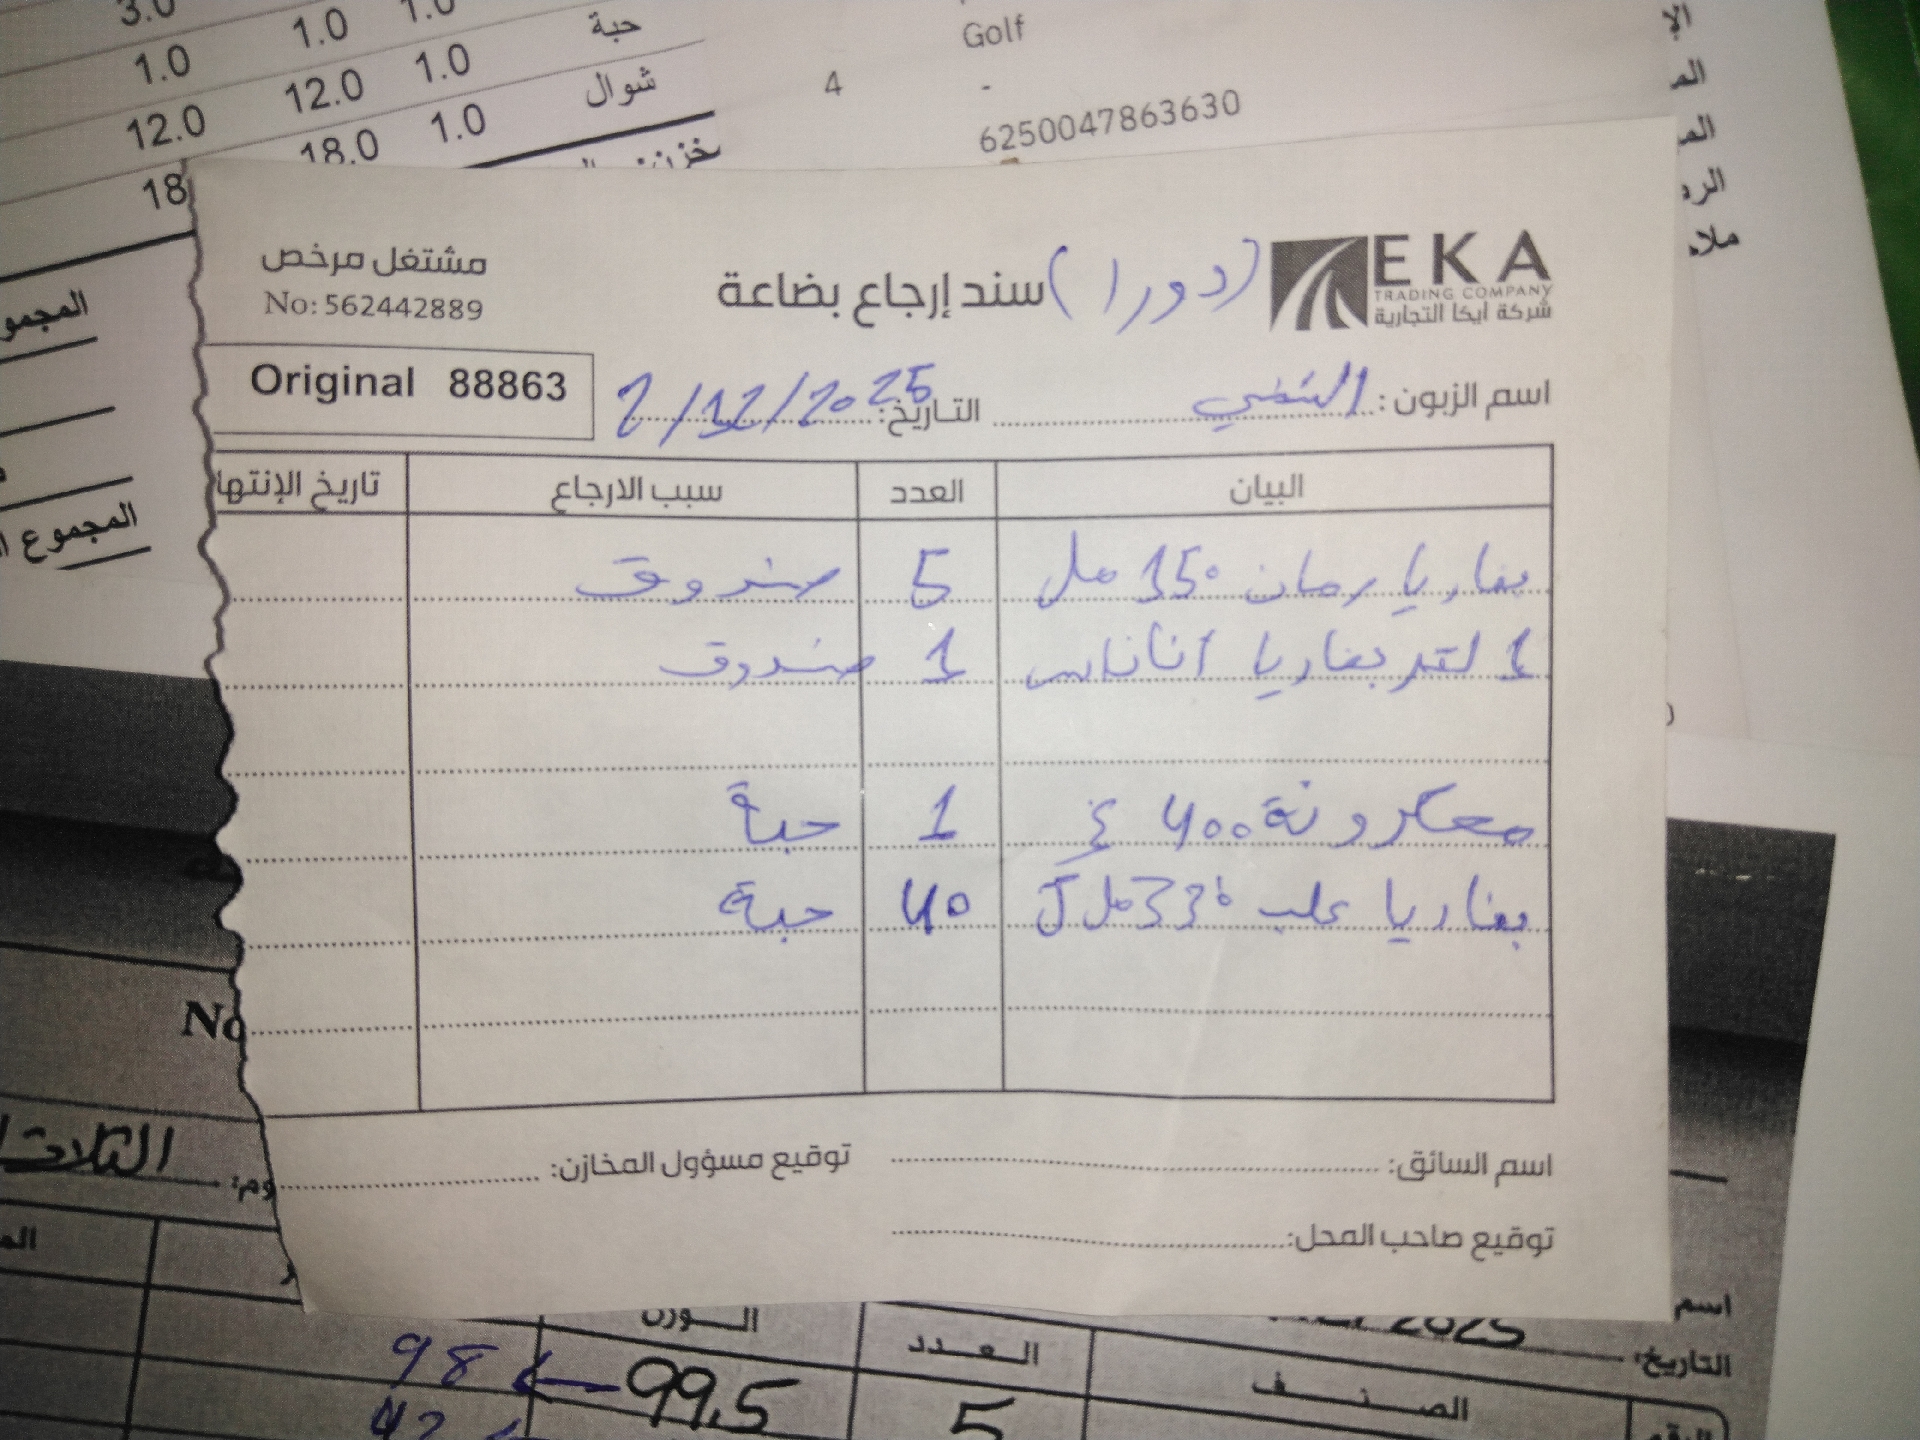 3.0
1.0 1.0 1.0 حبة
12.0 12.0 1.0 شوال
18.0 1.0
18
Golf
4 -
6250047863630
EKA
TRADING COMPANY
شركة أيكا التجارية
سند إرجاع بضاعة (دورا)
مشتغل مرخص
No: 562442889
Original 88863
اسم الزبون:
التاريخ: 2/12/2025
البيان العدد سبب الارجاع تاريخ الإنتها
بفاريا رمان 350 مل 5 صندوق
1 لتر بفاريا اناناس 1 صندوق
معكرونة 400 غ 1 حبة
بفاريا علب 330 مل 40 حبة
اسم السائق: توقيع مسؤول المخازن:
توقيع صاحب المحل:
المجمو
المجموع ا
No
الثلاثا
اسم
التاريخ: 2025
الصنف العدد الوزن
5 99.5 98
42